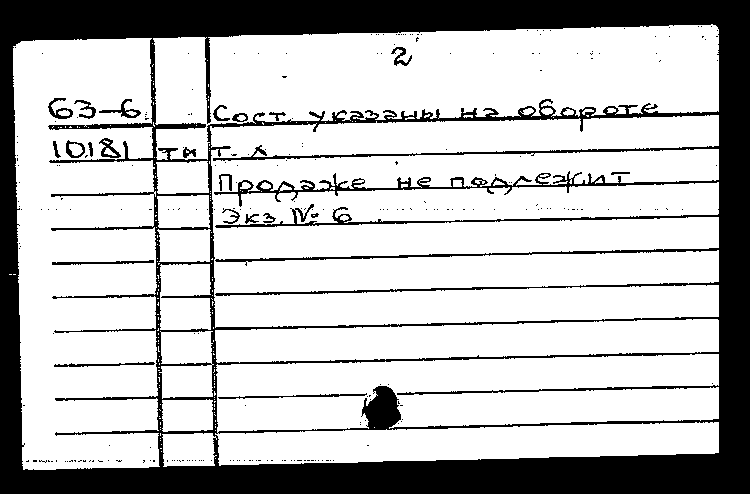 2
63-6 Сост. указаны на обороте
10181 ти т. л.
Продаже не подлежит
Экз. № 6